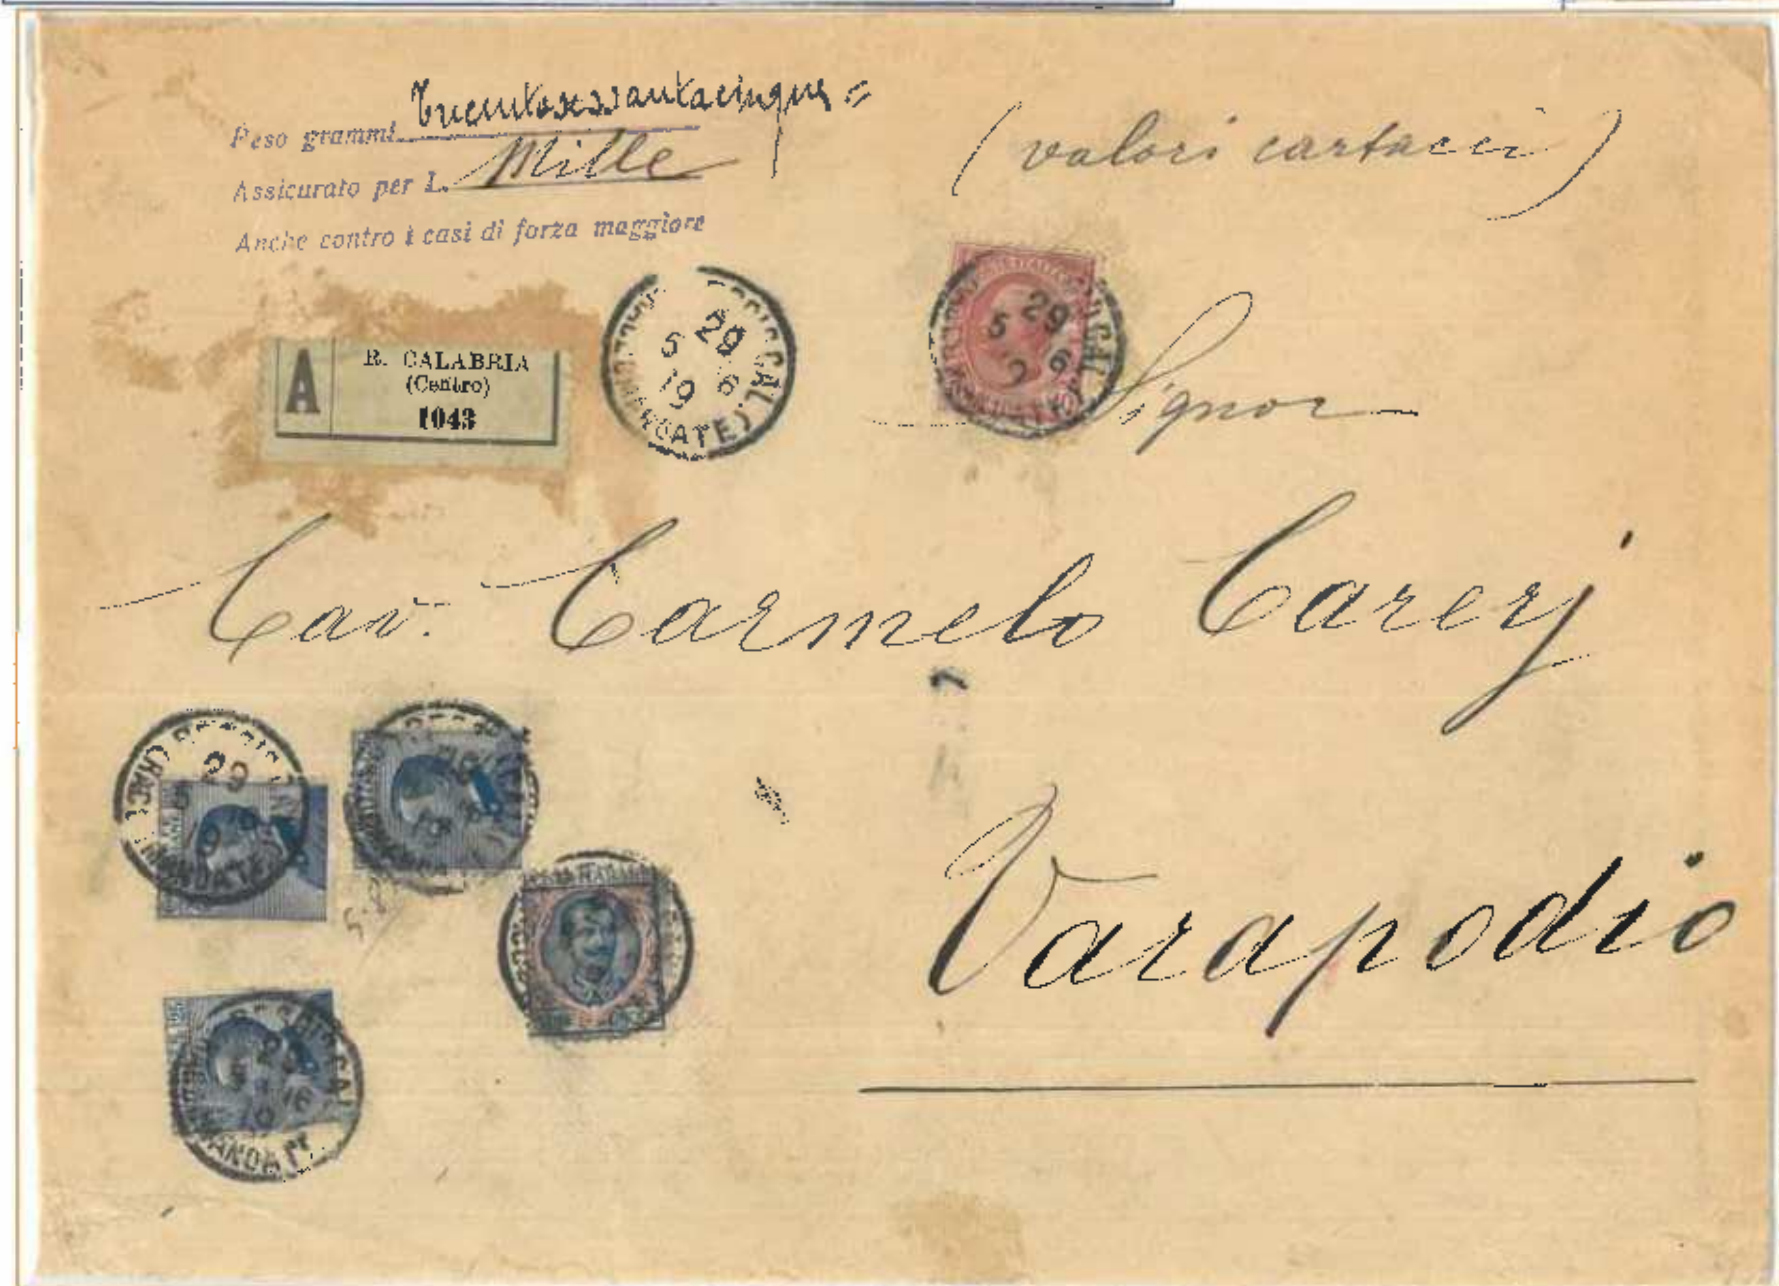 Peso grammi trecentosessantacinque =
Assicurato per L. Mille
Anche contro i casi di forza maggiore
(valori cartacei)
A
R. CALABRIA
(Centro)
1043
29
5 6
19
29
5 6
Signor
Cav. Carmelo Carerj
Varapodio